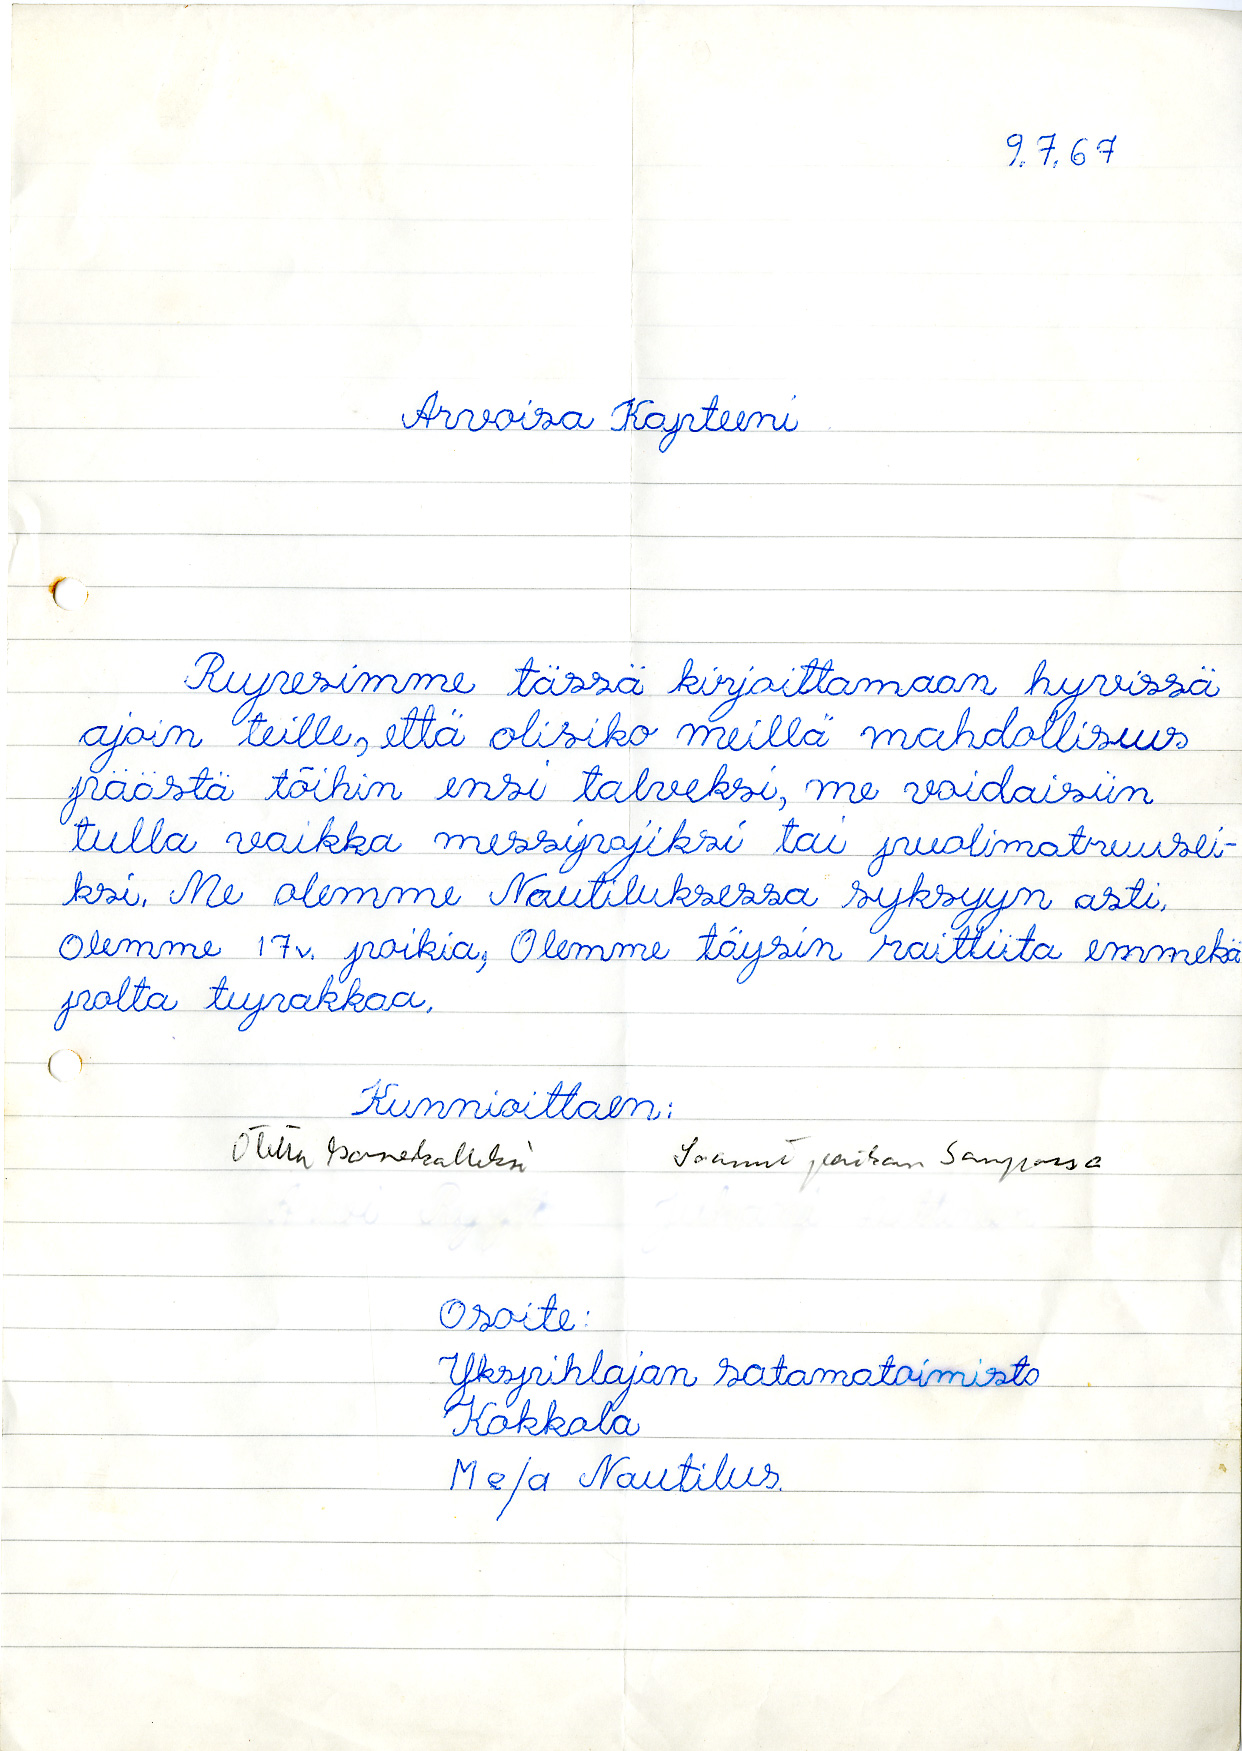 9.7.67
Arvoisa Kapteeni
Rupesimme tässä kirjoittamaan hyvissä
ajoin teille, että olisiko meillä mahdollisuus
päästä töihin ensi talveksi, me voidaisiin
tulla vaikka messipojiksi tai puolimatruusei-
ksi. Me olemme Nautiluksessa syksyyn asti.
Olemme 17v. poikia, Olemme täysin raittiita emmekä
polta tupakkaa.
Kunnioittaen:
Otettu konekalleksi Saanut paikan Sampossa
Osoite:
Ykspihlajan satamatoimisto
Kokkola
Me/a Nautilus.